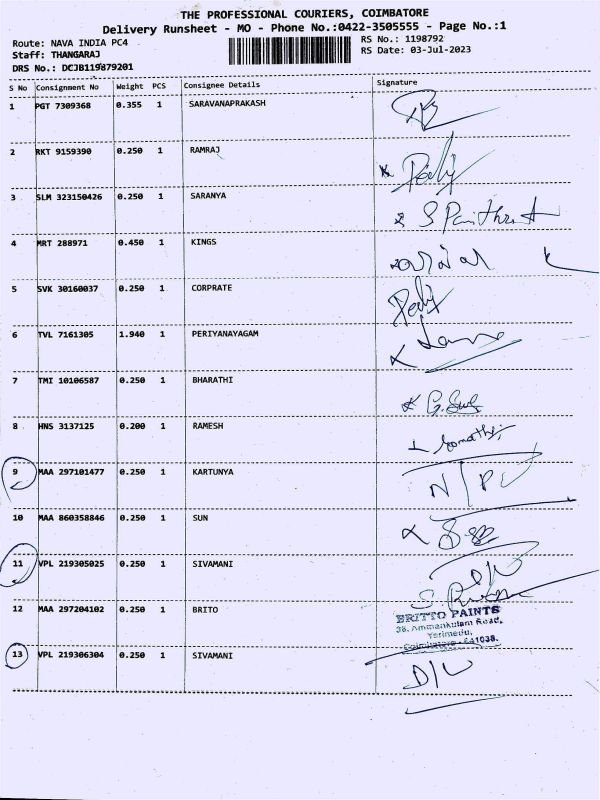 THE PROFESSIONAL COURIERS, COIMBATORE
Delivery Runsheet - MO - Phone No.:0422-3505555 - Page No.:1
Route: NAVA INDIA PC4 RS No.: 1198792
Staff: THANGARAJ RS Date: 03-Jul-2023
DRS No.: DCJB119879201
S No Consignment No Weight PCS Consignee Details Signature
1 PGT 7309368 0.355 1 SARAVANAPRAKASH
2 RKT 9159390 0.250 1 RAMRAJ
3 SLM 323150426 0.250 1 SARANYA
4 MRT 288971 0.450 1 KINGS
5 SVK 30160037 0.250 1 CORPRATE
6 TVL 7161305 1.940 1 PERIYANAYAGAM
7 TMI 10106587 0.250 1 BHARATHI
8 HNS 3137125 0.200 1 RAMESH
9 MAA 297101477 0.250 1 KARTUNYA
10 MAA 860358846 0.250 1 SUN
11 VPL 219305025 0.250 1 SIVAMANI
12 MAA 297204102 0.250 1 BRITO
BRITTO PAINTS
38, Ammankulam Road,
Coimbatore - 641038.
13 VPL 219306304 0.250 1 SIVAMANI